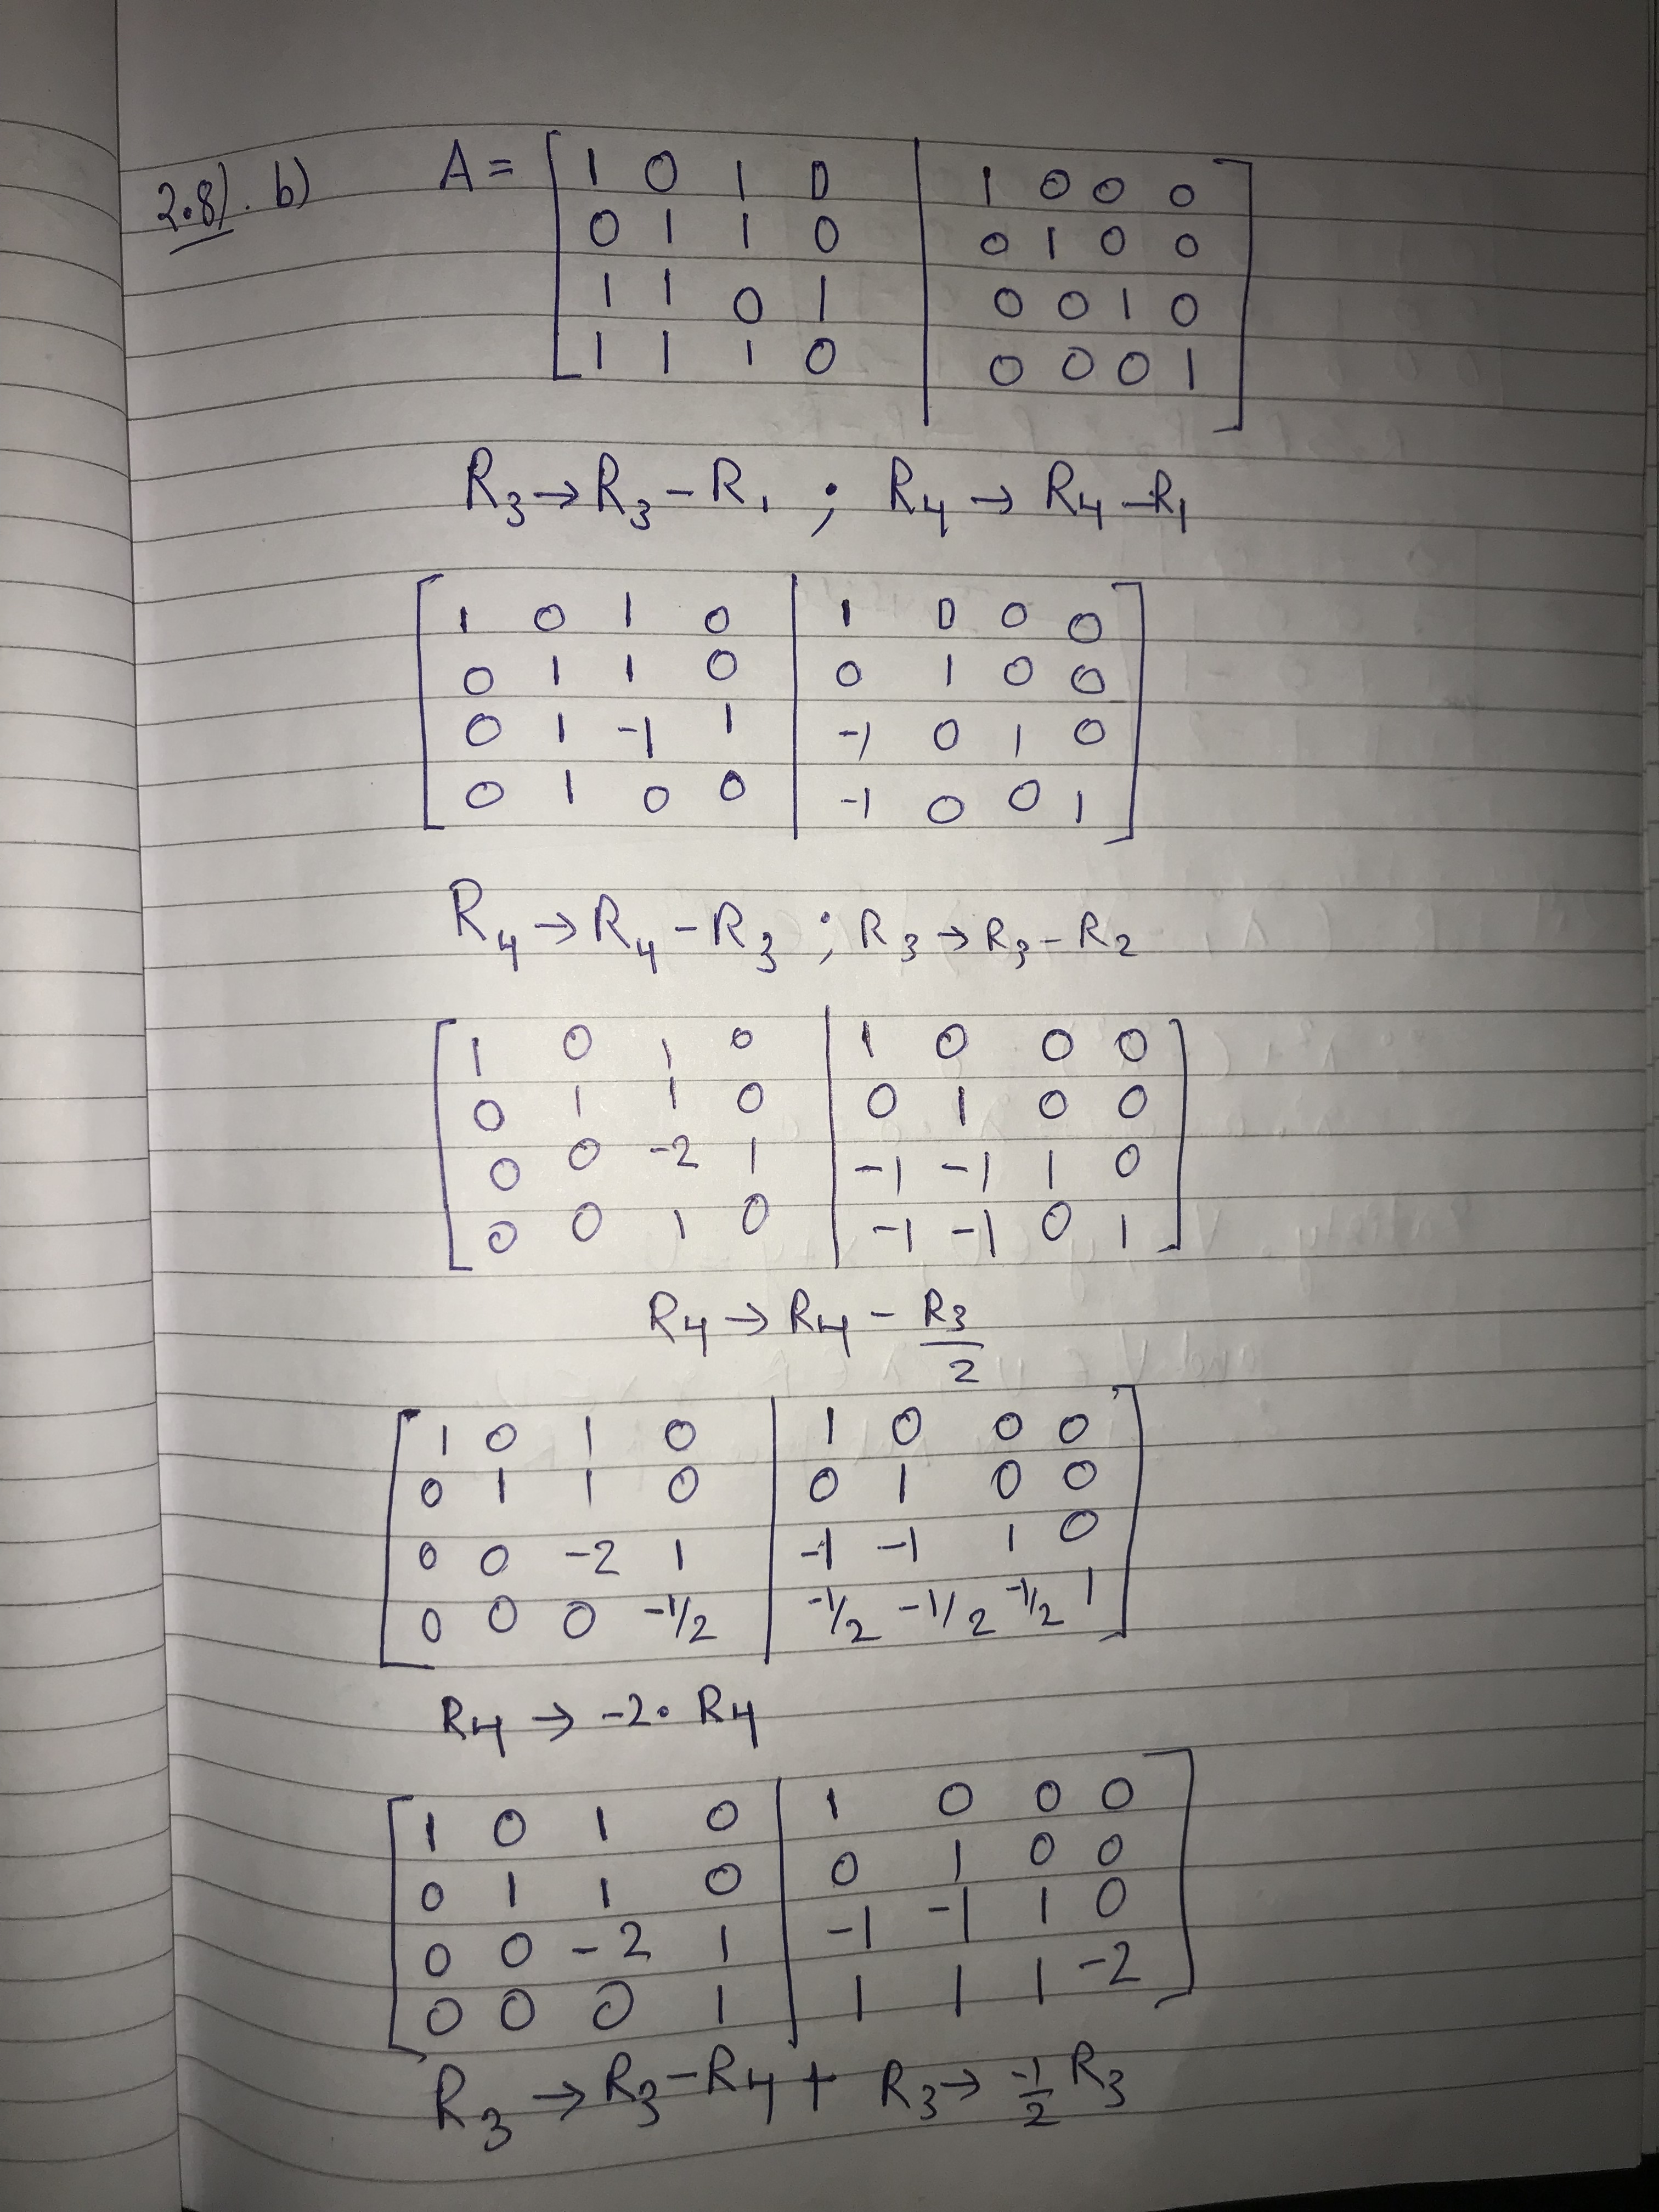 2.8). b) A = [ 1 0 1 0 | 1 0 0 0
0 1 1 0 | 0 1 0 0
1 1 0 1 | 0 0 1 0
1 1 1 0 | 0 0 0 1 ]
R3 → R3 - R1 ; R4 → R4 - R1
[ 1 0 1 0 | 1 0 0 0
0 1 1 0 | 0 1 0 0
0 1 -1 1 | -1 0 1 0
0 1 0 0 | -1 0 0 1 ]
R4 → R4 - R3 ; R3 → R3 - R2
[ 1 0 1 0 | 1 0 0 0
0 1 1 0 | 0 1 0 0
0 0 -2 1 | -1 -1 1 0
0 0 1 0 | -1 -1 0 1 ]
R4 → R4 - R3/2
[ 1 0 1 0 | 1 0 0 0
0 1 1 0 | 0 1 0 0
0 0 -2 1 | -1 -1 1 0
0 0 0 -1/2 | -1/2 -1/2 -1/2 1 ]
R4 → -2 · R4
[ 1 0 1 0 | 1 0 0 0
0 1 1 0 | 0 1 0 0
0 0 -2 1 | -1 -1 1 0
0 0 0 1 | 1 1 1 -2 ]
R3 → R3 - R4 + R3 → -1/2 R3